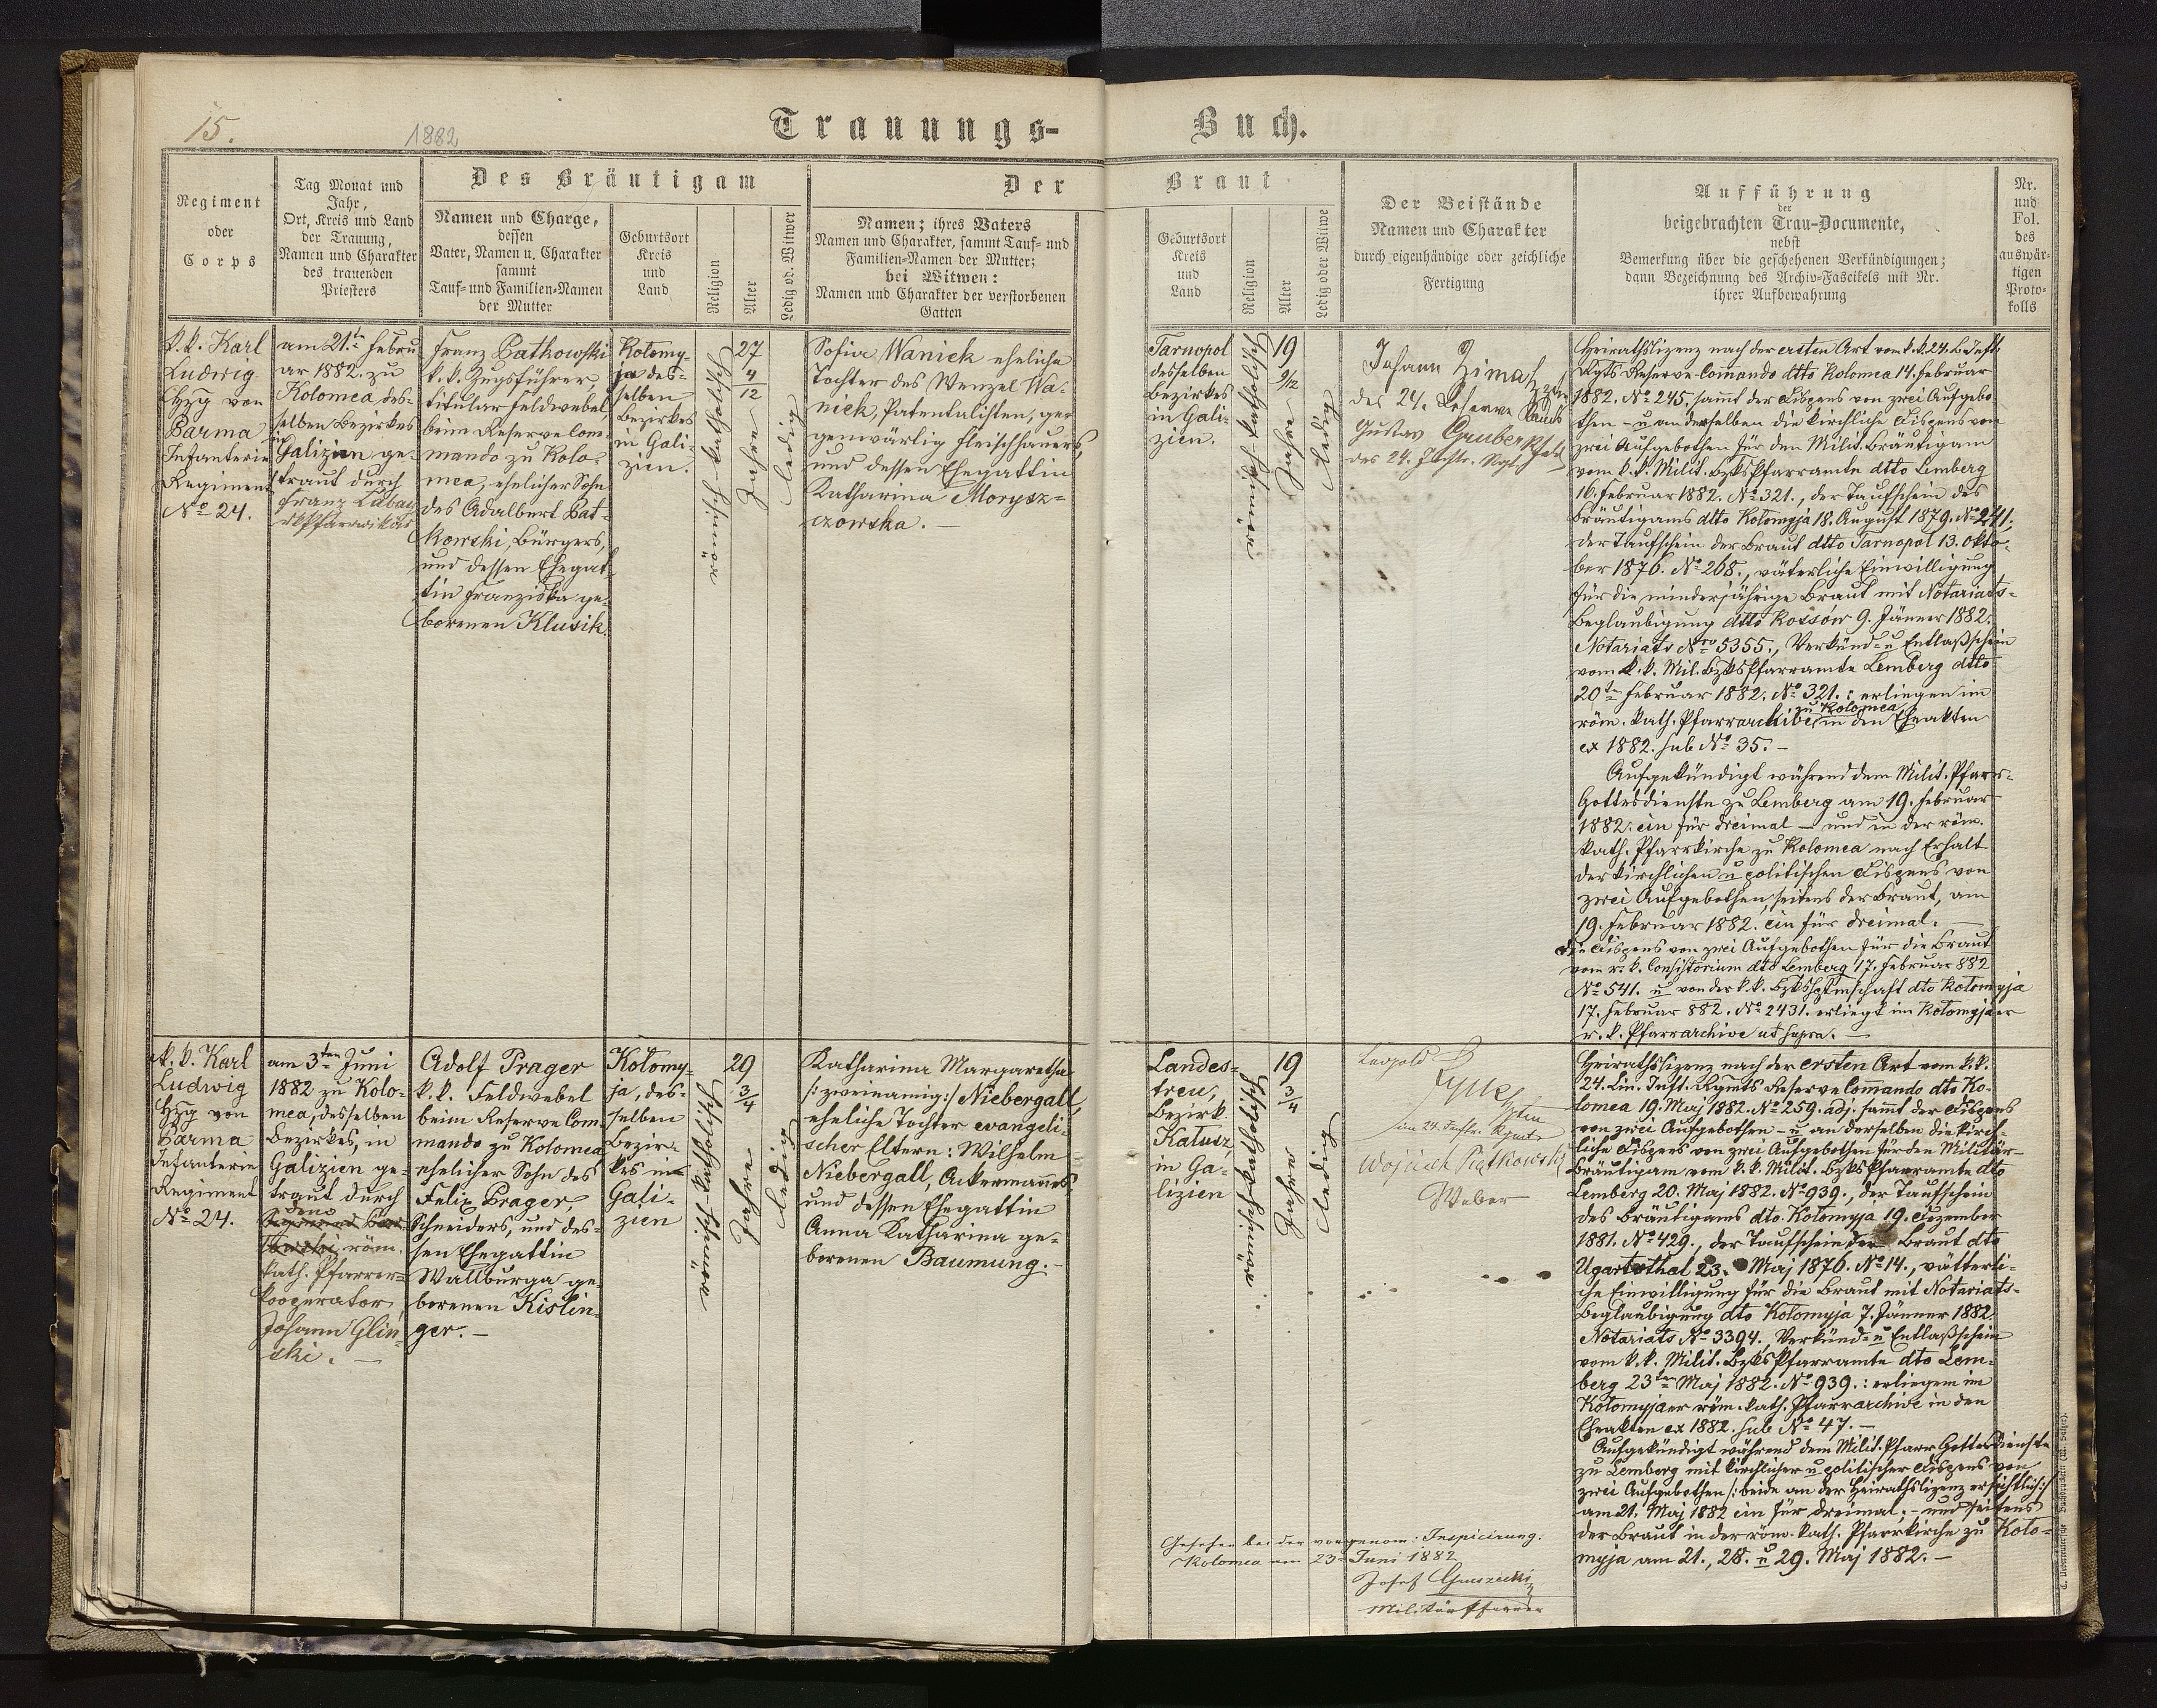 15.
1882
Trauungs-
Buch.
Regiment
oder
Corps
Tag Monat und
Jahr,
Ort, Kreis und Land
der Trauung,
Namen und Charakter
des trauenden
Priesters
Des Bräutigam
Namen und Charge,
dessen
Vater, Namen u. Charakter
sammt
Tauf- und Familien-Namen
der Mutter
Geburtsort
Kreis
und
Land
Religion
Alter
Ledig od. Witwer
Der
Namen; ihres Vaters
Namen und Charakter, sammt Tauf- und
Familien-Namen der Mutter;
bei Witwen:
Namen und Charakter der verstorbenen
Gatten
Braut
Geburtsort
Kreis
und
Land
Religion
Alter
Ledig oder Witwe
Der Beistände
Namen und Charakter
durch eigenhändige oder zeichliche
Fertigung
Aufführung
der
beigebrachten Trau-Documente,
nebst
Bemerkung über die geschehenen Verkündigungen;
dann Bezeichnung des Archiv-Fascikels mit Nr.
ihrer Aufbewahrung
Nr.
und
Fol.
des
auswär-
tigen
Proto-
kolls
k. k. Karl
Ludwig
Hzg von
Parma
Infanterie
Regiment
No 24.
am 21ten Febru
ar 1882. zu
Kolomea des-
selben Bezirkes
in
Galizien ge-
traut durch
Franz Łabay
rk Pfarrvikar
Franz Patkowski
k. k. Zugsführer,
titular Feldwebel
beim Reserve Com-
mando zu Kolo-
mea, ehelicher Sohn
des Adalbert Pat-
kowski, Bürgers,
und dessen Ehegat-
tin Franziska ge-
borenen Klusik.
Kołomy-
ja des-
selben
Bezirkes
in Gali-
zien.
römisch-katholisch
27
4/12
Jahre
ledig
Sofia Waniek eheliche
Tochter des Wenzel Wa-
niek, Patentalisten, ge-
genwärtig Fleischhauers,
und dessen Ehegattin
Katharina Morysz-
czowska. —
Tarnopol
desselben
Bezirkes
in Gali-
zien.
römisch-katholisch
19
9/12
Jahre
ledig
Johann Zima
des 24. Reserve
Gustav Gruber
des 24.
Heirathslizenz nach der ersten Art vom k. k. 24. L. Inft.
Rgts Reserve-Commando dtto Kolomea 14. Februar
1882. No 245. sammt der Dispens von zwei Aufgebo-
then – u an derselben die kirchliche Dispens von
zwei Aufgebothen für den Milit. Bräutigam
vom k. k. Milit. Bzks Pfarramte dtto Lemberg
16. Februar 1882. No 321., der Taufschein des
Bräutigams dtto Kołomyja 18. August 1879. No 241.;
der Taufschein der Braut dtto Tarnopol 13. Okto-
ber 1876. No 268., väterliche Einwilligung
für die minderjährige Braut mit Notariats-
Beglaubigung dtto Kossów 9. Jänner 1882.
Notariats Nro 5355., Verkünd- u Entlaßschein
vom k. k. Mil. Bzks Pfarramte Lemberg dtto
20ten Februar 1882. No 321.: erliegen im
zu Kolomea
röm. kath. Pfarrarchive in den Eheakten
ex 1882. sub No 35. –
Aufgekündigt während dem Milit. Pfarr-
Gottesdienste zu Lemberg am 19. Februar
1882. ein für dreimal — und in der röm.
kath. Pfarrkirche zu Kolomea nach Erhalt
der kirchlichen u politischen Dispens von
zwei Aufgebothen, seitens der Braut, am
19. Februar 1882. ein für dreimal. —
Die Dispens von zwei Aufgebothen für die Braut
vom r. k. Consistorium dtto Lemberg 17. Februar 882
No 541. u von der k. k. Bzkshptmschaft dto Kołomyja
17. Februar 882. No 2431. erliegt im Kołomyjaer
r. k. Pfarrarchive ut supra. —
k. k. Karl
Ludwig
Hzg von
Parma
Infanterie
Regiment
No 24.
am 3ten Juni
1882 zu Kolo-
mea, desselben
Bezirkes, in
Galizien ge-
traut durch
den
röm.
kath. Pfarrer-
kooperator
Johann Gliń-
ski. —
Adolf Prager
k. k. Feldwebel
beim Reserve Com-
mando zu Kolomea
ehelicher Sohn des
Felix Prager,
Schneiders, und des-
sen Ehegattin
Wallburga ge-
borenen Kislin-
ger. —
Kołomy-
ja, des-
selben
Bezir-
kes in
Gali-
zien
römisch-katholisch
29
3/4
Jahre
ledig
Katharina Margaretha
/: zweinamig:/ Niebergall,
eheliche Tochter evangeli-
scher Eltern: Wilhelm
Niebergall, Ackermannes,
und dessen Ehegattin
Anna Katharina ge-
borenen Baumung. –
Landes-
treu,
Bezirk
Kałusz,
in Ga-
lizien
römisch-katholisch
19
3/4
Jahre
ledig
Leopold
im 24. Inftr. Rgmte
Wojciech Piątkowski
Weber
Heirathslizenz nach der ersten Art vom k. k.
24. Lin. Inft. Rgmts Reserve Commando dto Ko-
lomea 19. Maj 1882. No 259. adj. sammt der Dispens
von zwei Aufgebothen – u an derselben die kirch-
liche Dispens von zwei Aufgebothen für den Militär-
bräutigam vom k. k. Milit. Bzks Pfarramte dto
Lemberg 20. Maj 1882. No 939., der Taufschein
des Bräutigams dto Kołomyja 19. Dezember
1881. No 429., der Taufschein der Braut dto
Ugartsthal 23. Maj 1876. No 14., vätterli-
che Einwilligung für die Braut mit Notariats-
Beglaubigung dto Kołomyja 7. Jänner 1882.
Notariats No 3394. Verkünd- u Entlaßschein
vom k. k. Milit. Bzks Pfarramte dto Lem-
berg 23ten Maj 1882. No 939.: erliegen im
Kołomyjaer röm. kath. Pfarrarchive in den
Eheakten ex 1882. sub No 47. —
Aufgekündigt während dem Milit. Pfarr Gottesdienste
zu Lemberg mit kirchlicher u politischer Dispens von
zwei Aufgebothen /: beide an der Heirathslizenz ersichtlich:/
am 21. Maj 1882 ein für dreimal; – und seitens
der Braut in der röm. kath. Pfarrkirche zu Koło-
myja am 21., 28. u 29. Maj 1882. —
Gesehen bei der vorgenom: Inspicirung.
Kolomea am 23. Juni 1882
Josef Gruszecki
Militärpfarrer